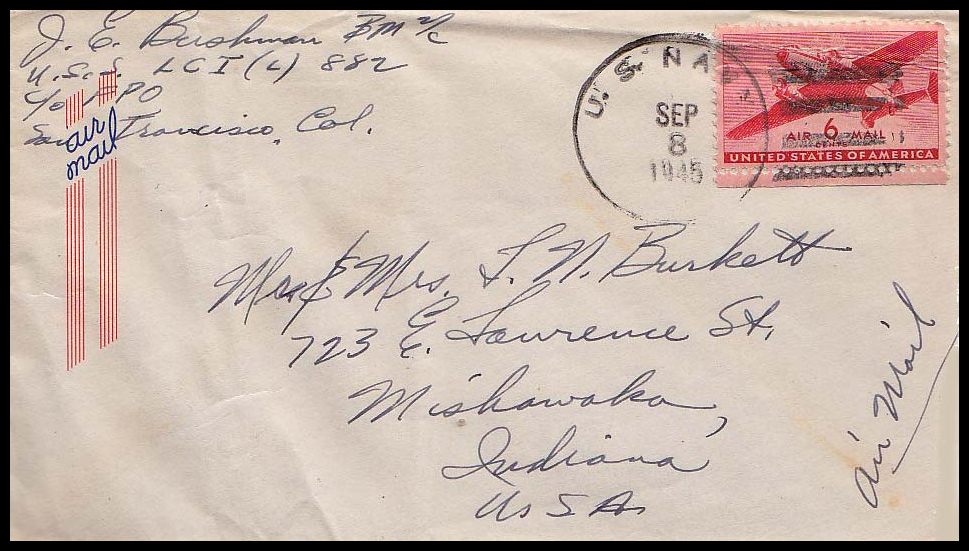 J. E. Bushman BM 2/c
U.S.S. LCI (L) 882
c/o FPO
San Francisco, Cal.
air
mail
U. S. NAVY
SEP
8
1945
AIR 6 MAIL
CENTS
UNITED STATES OF AMERICA
Mr & Mrs. L. N. Burkett
723 E. Lawrence St.
Mishawaka,
Indiana
USA
Air Mail